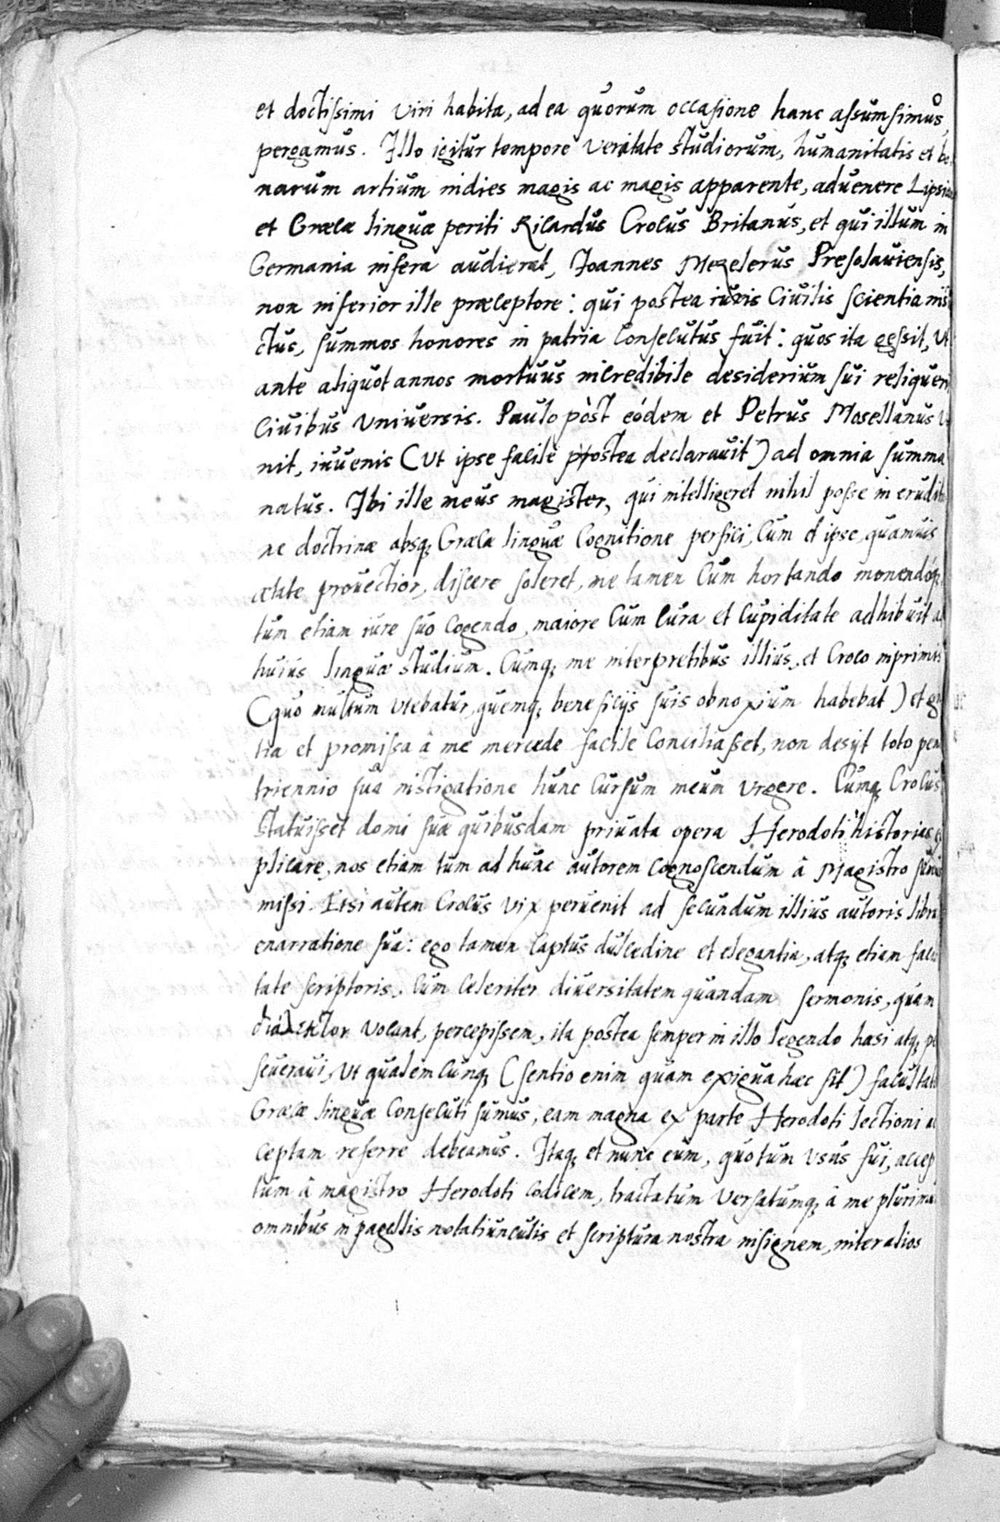 et doctissimi viri habita, ad ea quorum occasione hanc assumsimus,
pergamus. Illo igitur tempore veritate studiorum, humanitatis et bo
narum artium indies magis ac magis apparente, advenere Lipsiam
et Græcæ linguæ periti Ricardus Crocus Britanus, et qui illum in
Germania infera audierat, Joannes Mezelerus Presolaviensis,
non inferior ille præceptore: qui postea iuris civilis scientia in
ctus, summos honores in patria consecutus fuit: quos ita gessit, ut
ante aliquot annos mortuus incredibile desiderium sui reliquerit
civibus universis. Paulo pòst eódem et Petrus Mosellanus ve
nit, iuvenis (ut ipse facile postea declaravit) ad omnia summa
natus. Ibi ille meus magister, qui intelligeret nihil posse in erudit
ne doctrinæ absq; Græcæ linguæ cognitione perfici, cum et ipse, quamuis
ætate prouectior, discere soleret, me tamen cum hortando monendóq;
tum etiam iure suo cogendo, maiore cum cura et cupiditate adhibuit ad
huius linguæ studium. Cumq; me interpretibus illius, et Croco inprimis
(quo multum utebatur, quemq; beneficijs suis obnoxium habebat) et gra
tia et promissa à me mercede facile conciliasset, non desijt toto pene
triennio sua instigatione hunc cursum meum urgere. Cumq; Crocus
statuisset domi suæ quibusdam privata opera Herodoti historias ex
plicare, nos etiam tum ad hunc autorem cognoscendum à Magistro sumus
missi. Etsi autem Crocus vix pervenit ad secundum illius autoris librum
enarratione sua: ego tamen captus dulcedine et elegantia, atq; etiam facul
tate scriptoris, cum celeriter diversitatem quandam sermonis, quam
διάλεκτον vocant, percepissem, ita postea semper in illo legendo hæsi atq; per
severavi, ut qualemcunq; (sentio enim quam exigua hæc sit) facultatem
Græcæ linguæ consecuti sumus, eam magna ex parte Herodoti lectioni ac
ceptam referre debeamus. Itaq; et nunc eum, quo tum usus fui, accep
tum à magistro Herodoti codicem, tractatum versatumq; à me plurimum
omnibus in pagellis notatiunculis et scriptura nostra insignem, inter alios